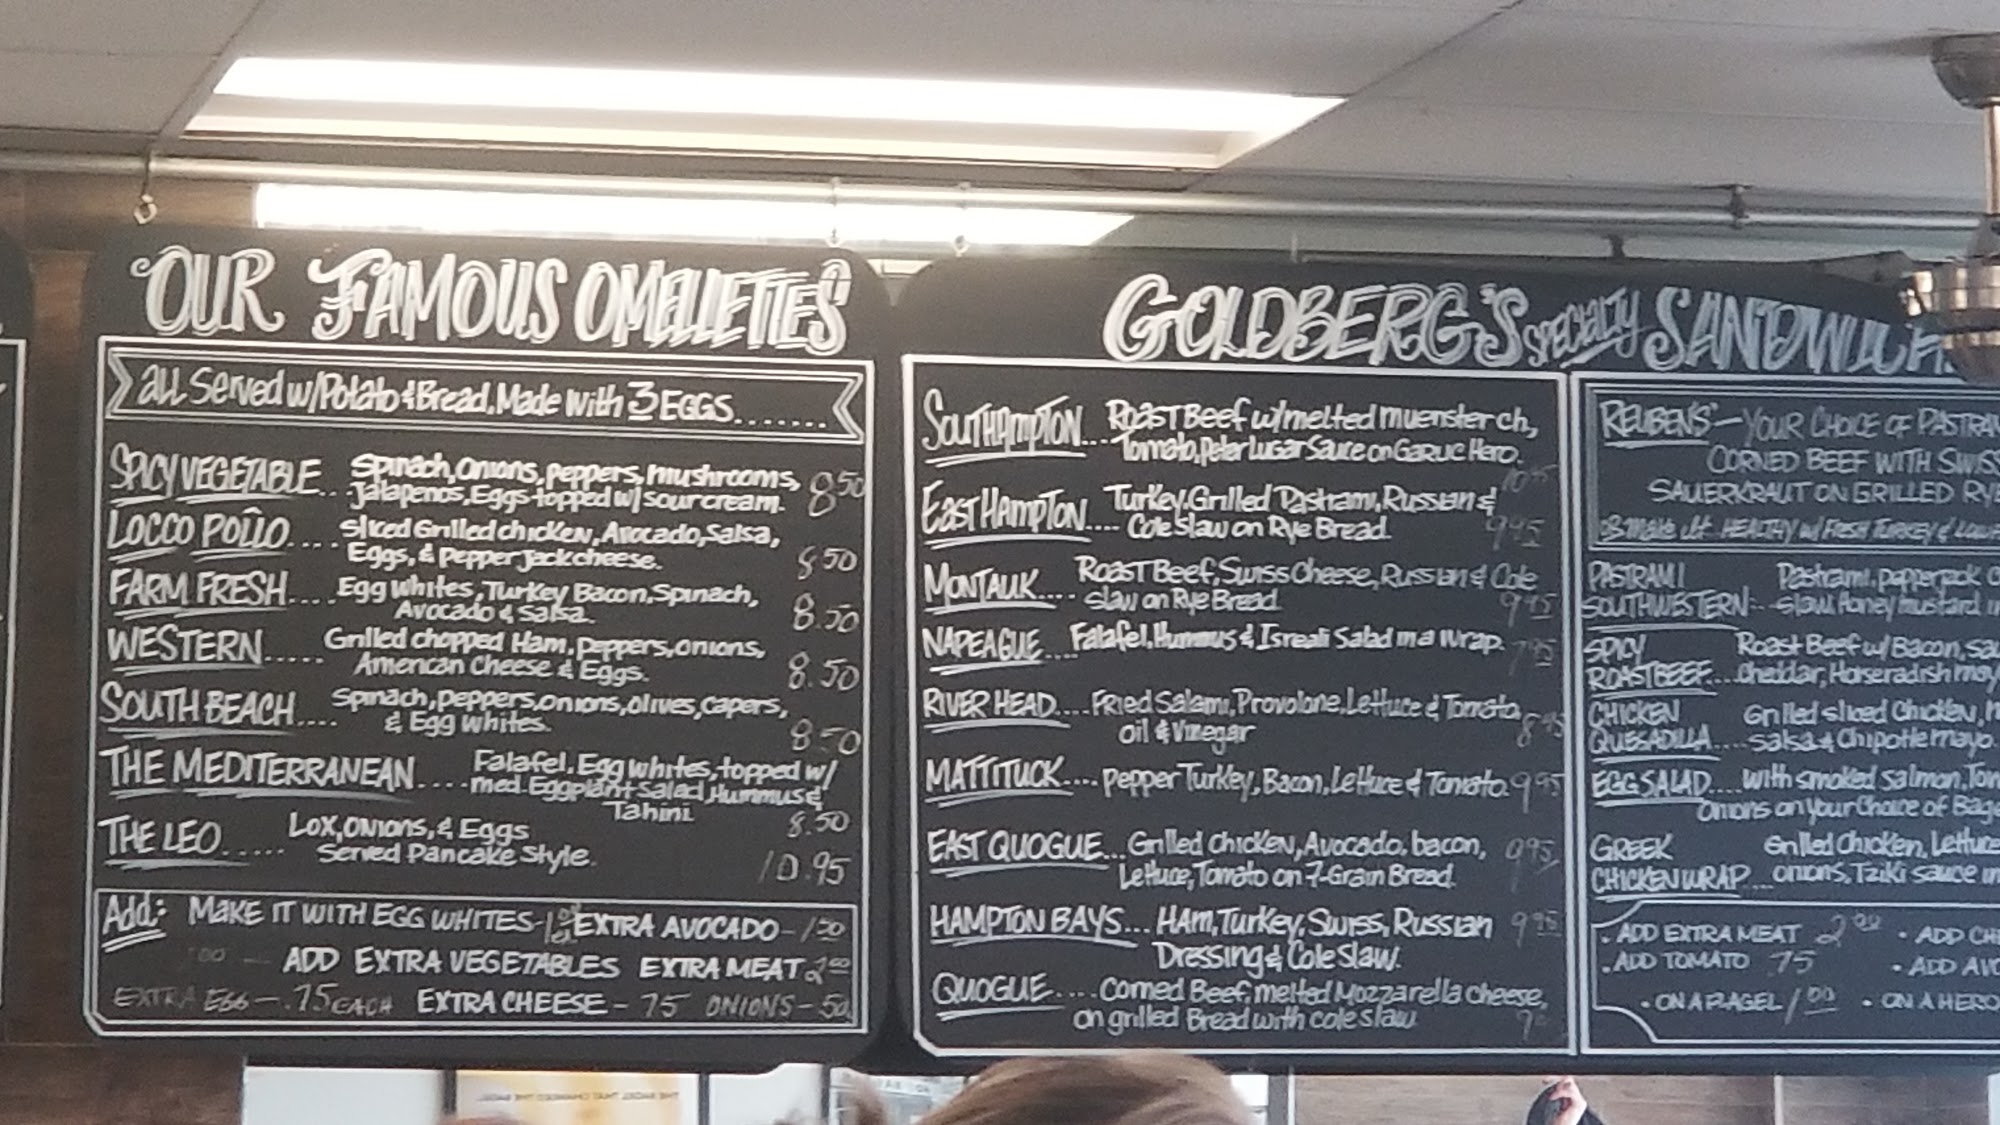 OUR FAMOUS OMELLETTES
all Served w/Potato & Bread. Made with 3 EGGS........
SPICY VEGETABLE.. Spinach, onions, peppers, mushrooms,
Jalapenos, Eggs topped w/ sour cream. 8.50
LOCCO POLLO.... Sliced Grilled chicken, Avocado, Salsa,
Eggs, & Pepper Jack cheese. 8.50
FARM FRESH.... Egg whites, Turkey Bacon, Spinach,
Avocado & Salsa. 8.50
WESTERN..... Grilled chopped Ham, peppers, onions,
American Cheese & Eggs. 8.50
SOUTH BEACH.... Spinach, peppers, onions, olives, capers,
& Egg whites. 8.50
THE MEDITERRANEAN.... Falafel, Egg whites, topped w/
med. Eggplant Salad, Hummus &
Tahini. 8.50
THE LEO..... Lox, onions, & Eggs
Served Pancake Style. 10.95
Add: MAKE IT WITH EGG WHITES- EXTRA AVOCADO- 1.50
ADD EXTRA VEGETABLES EXTRA MEAT 2.00
EXTRA EGG - .75 EACH EXTRA CHEESE - 75 ONIONS - 50
GOLDBERG'S SPECIALTY
SOUTHAMPTON.... Roast Beef w/melted muenster ch,
Tomato, Peter Lugar Sauce on Garlic Hero.
EAST HAMPTON.... Turkey, Grilled Pastrami, Russian &
Cole slaw on Rye Bread. 9.95
MONTAUK.... Roast Beef, Swiss Cheese, Russian & Cole
slaw on Rye Bread. 9.95
NAPEAGUE.... Falafel, Hummus & Isreali Salad in a wrap. 7.95
RIVER HEAD.... Fried Salami, Provolone, Lettuce & Tomato,
oil & Vinegar 8.95
MATTITUCK.... pepper Turkey, Bacon, Lettuce & Tomato. 9.95
EAST QUOGUE... Grilled Chicken, Avocado, bacon, 9.95
Lettuce, Tomato on 7-Grain Bread.
HAMPTON BAYS... Ham, Turkey, Swiss, Russian 9.95
Dressing & Cole Slaw.
QUOGUE.... Corned Beef, melted Mozzarella cheese,
on grilled Bread with cole slaw.
REUBENS'- YOUR CHOICE OF
CORNED BEEF WITH
SAUERKRAUT ON GRILLED
make it HEALTHY w/ FRESH TURKEY &
PASTRAMI Pastrami, pepperjack
SOUTHWESTERN.. slaw, honey mustard
SPICY Roast Beef w/ Bacon,
ROAST BEEF... cheddar, Horseradish
CHICKEN Grilled sliced Chicken,
QUESADILLA.... salsa & Chipotle mayo.
EGG SALAD.... with smoked salmon,
onions on your Choice of
GREEK Grilled Chicken,
CHICKEN WRAP... onions, Tziki sauce
• ADD EXTRA MEAT 2.00 • ADD
• ADD TOMATO .75 • ADD
• ON A FLAGEL 1.00 • ON A HERO